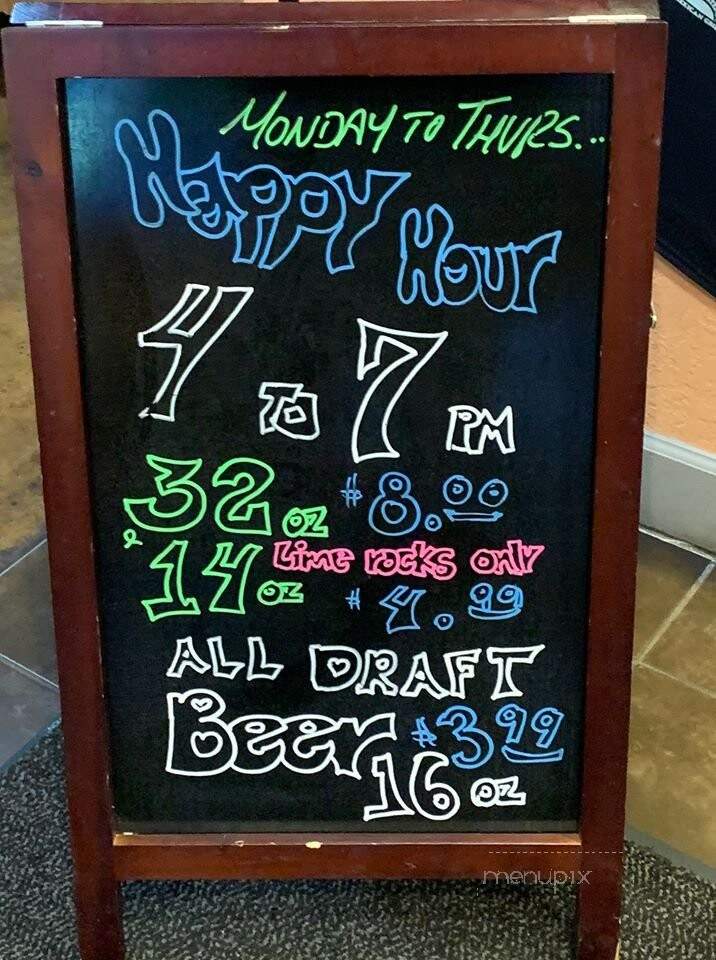 MONDAY TO THURS...
Happy
Hour
4 TO 7 PM
32 oz $8.00
& 14 oz Lime rocks only
$4.99
ALL DRAFT
Beer $3.99
16 oz
menupix